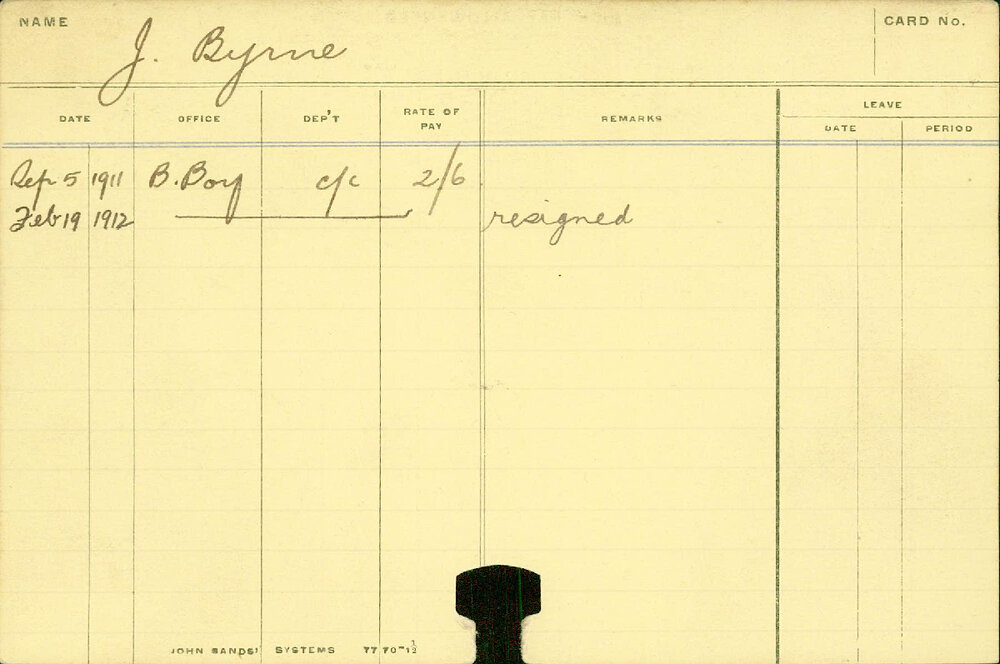 NAME J. Byrne CARD No.
DATE OFFICE DEP'T RATE OF PAY REMARKS LEAVE
DATE PERIOD
Sep 5 1911 B. Boy c/c 2/6
Feb 19 1912 resigned
JOHN SANDS' SYSTEMS